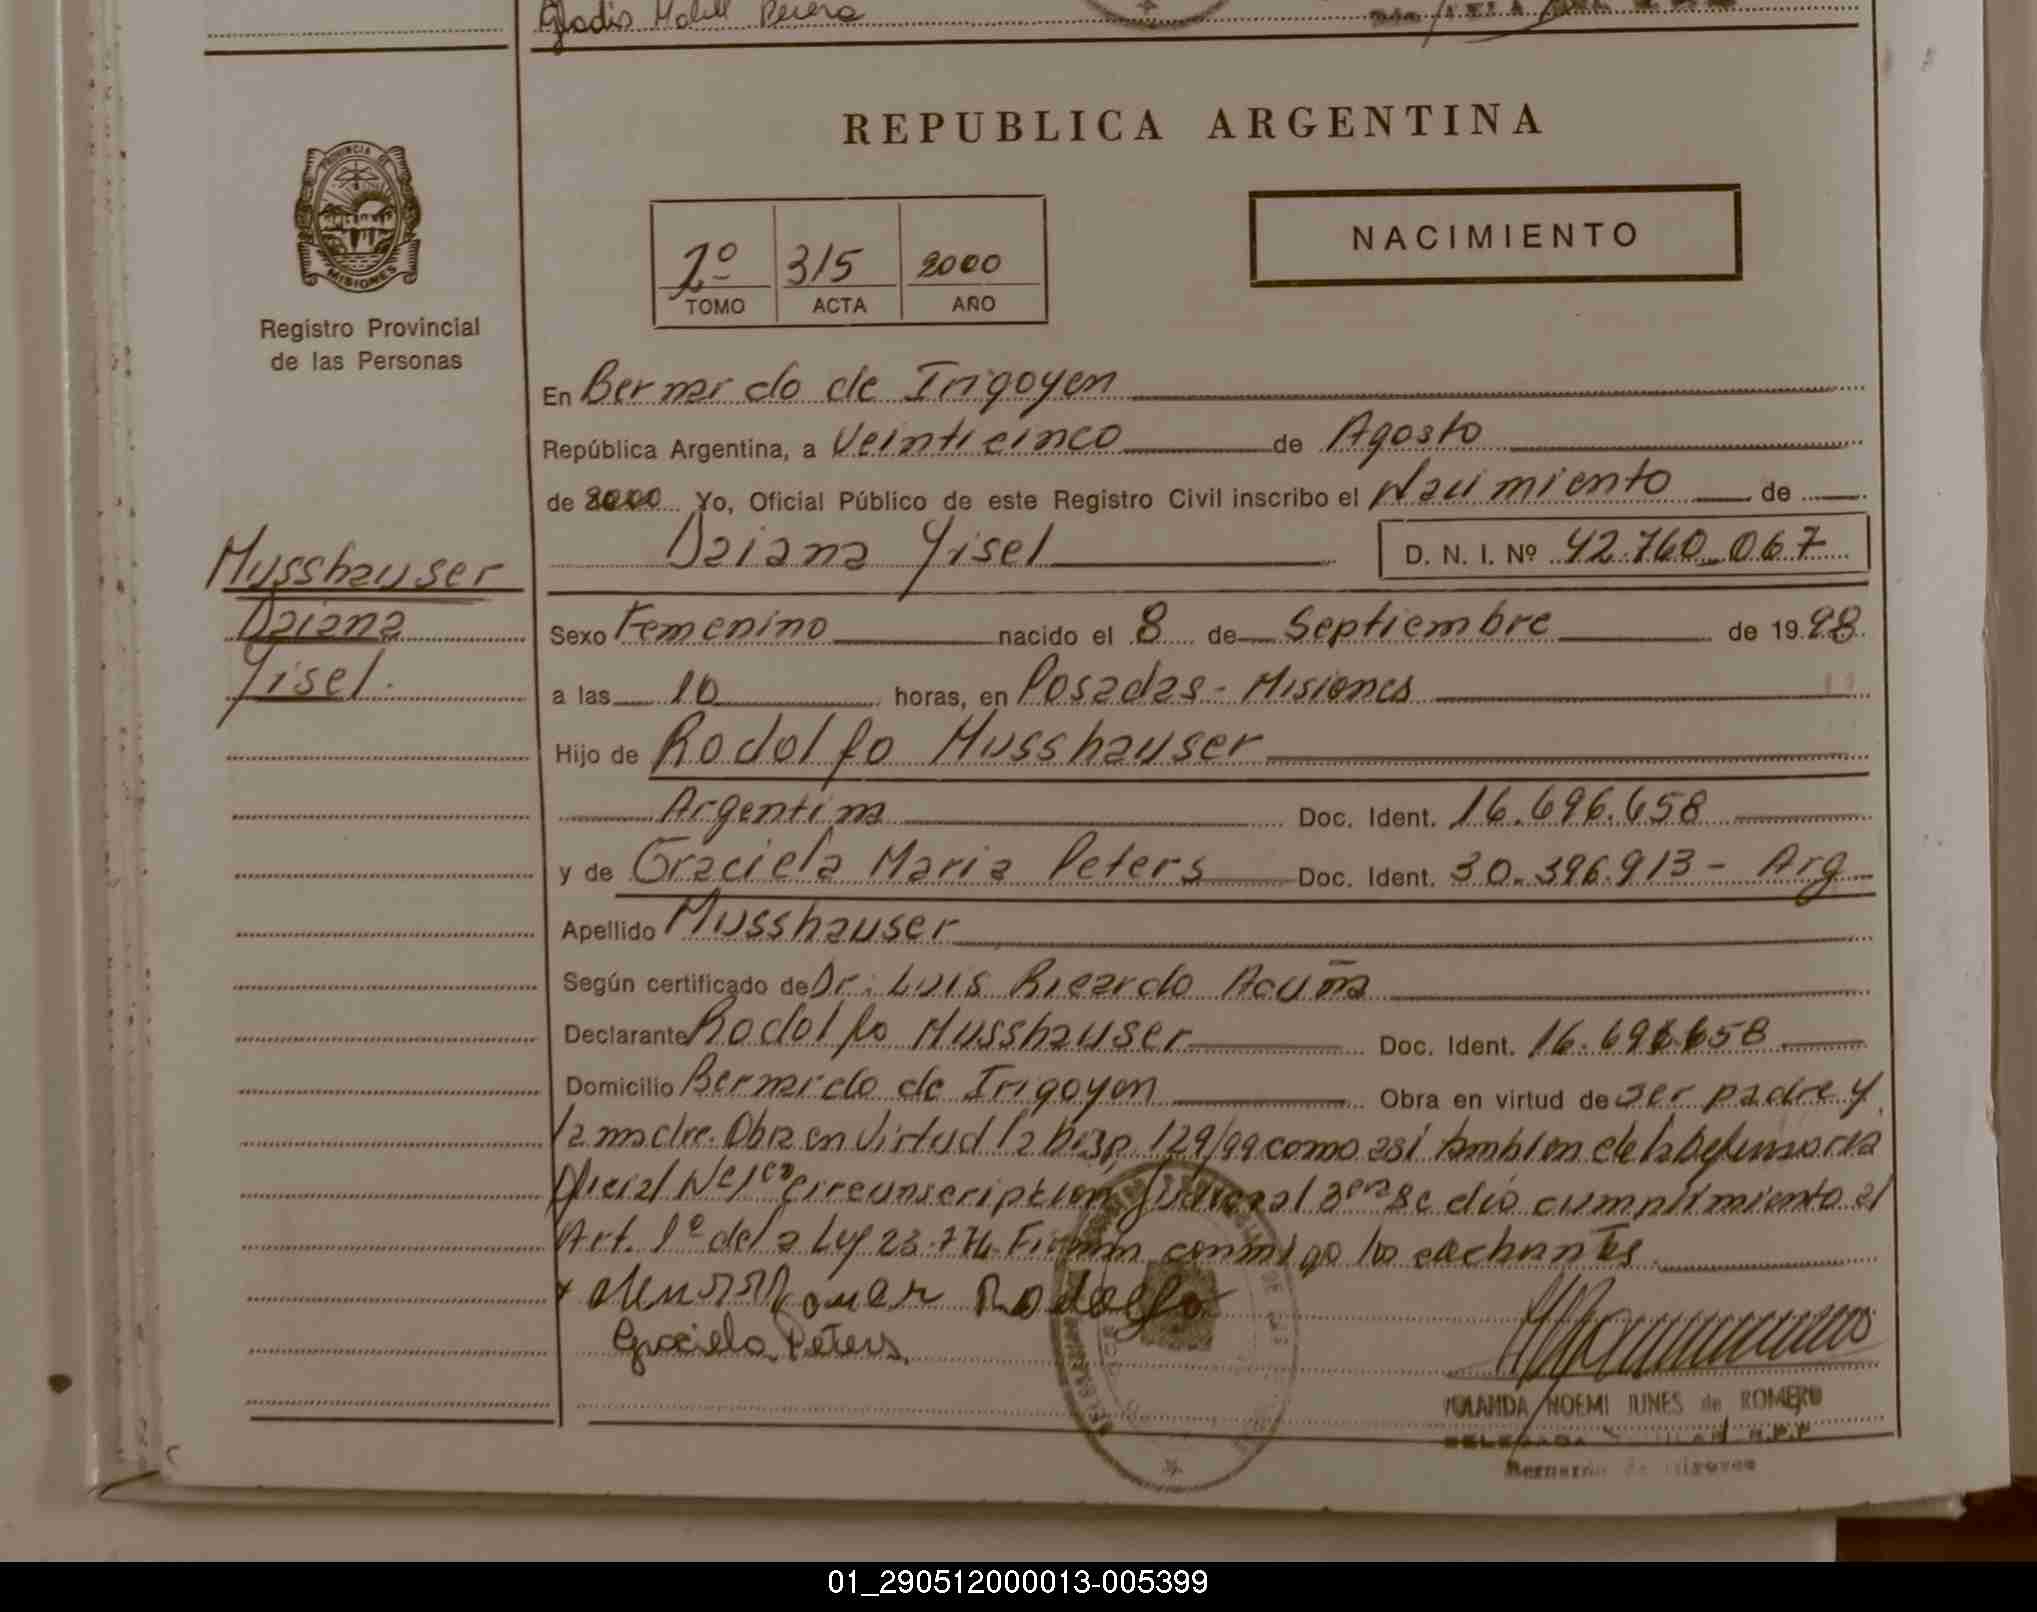 Gladis Mabel Perera
REPUBLICA ARGENTINA
PROVINCIA DE
MISIONES
Registro Provincial
de las Personas
2º 315 2000
TOMO ACTA AÑO
NACIMIENTO
En Bernardo de Irigoyen
República Argentina, a Veinticinco de Agosto
de 2000 Yo, Oficial Público de este Registro Civil inscribo el Nacimiento de
Daiana Yisel D. N. I. Nº 42.760.067
Musshauser
Daiana
Yisel.
Sexo Femenino nacido el 8 de Septiembre de 1998
a las 10 horas, en Posadas - Misiones
Hijo de Rodolfo Musshauser
Argentina Doc. Ident. 16.696.658
y de Graciela Maria Peters Doc. Ident. 30.396.913 - Arg
Apellido Musshauser
Según certificado de Dr. Luis Ricardo Acuña
Declarante Rodolfo Musshauser Doc. Ident. 16.696.658
Domicilio Bernardo de Irigoyen Obra en virtud de ser padre y
la madre. Obra en virtud la Disp. 129/99 como asi tambien de la Defensoria
Oficial Nº 1 circunscripcion Judicial 3era Se dió cumplimiento al
Art. 1º de la Ley 23.776. Firman conmigo los
Musshauser Rodolfo
Graciela Peters
YOLANDA NOEMI JUNES de ROMERO
DELEGADA TITULAR R.P.P
Bernardo de Irigoyen
01_290512000013-005399